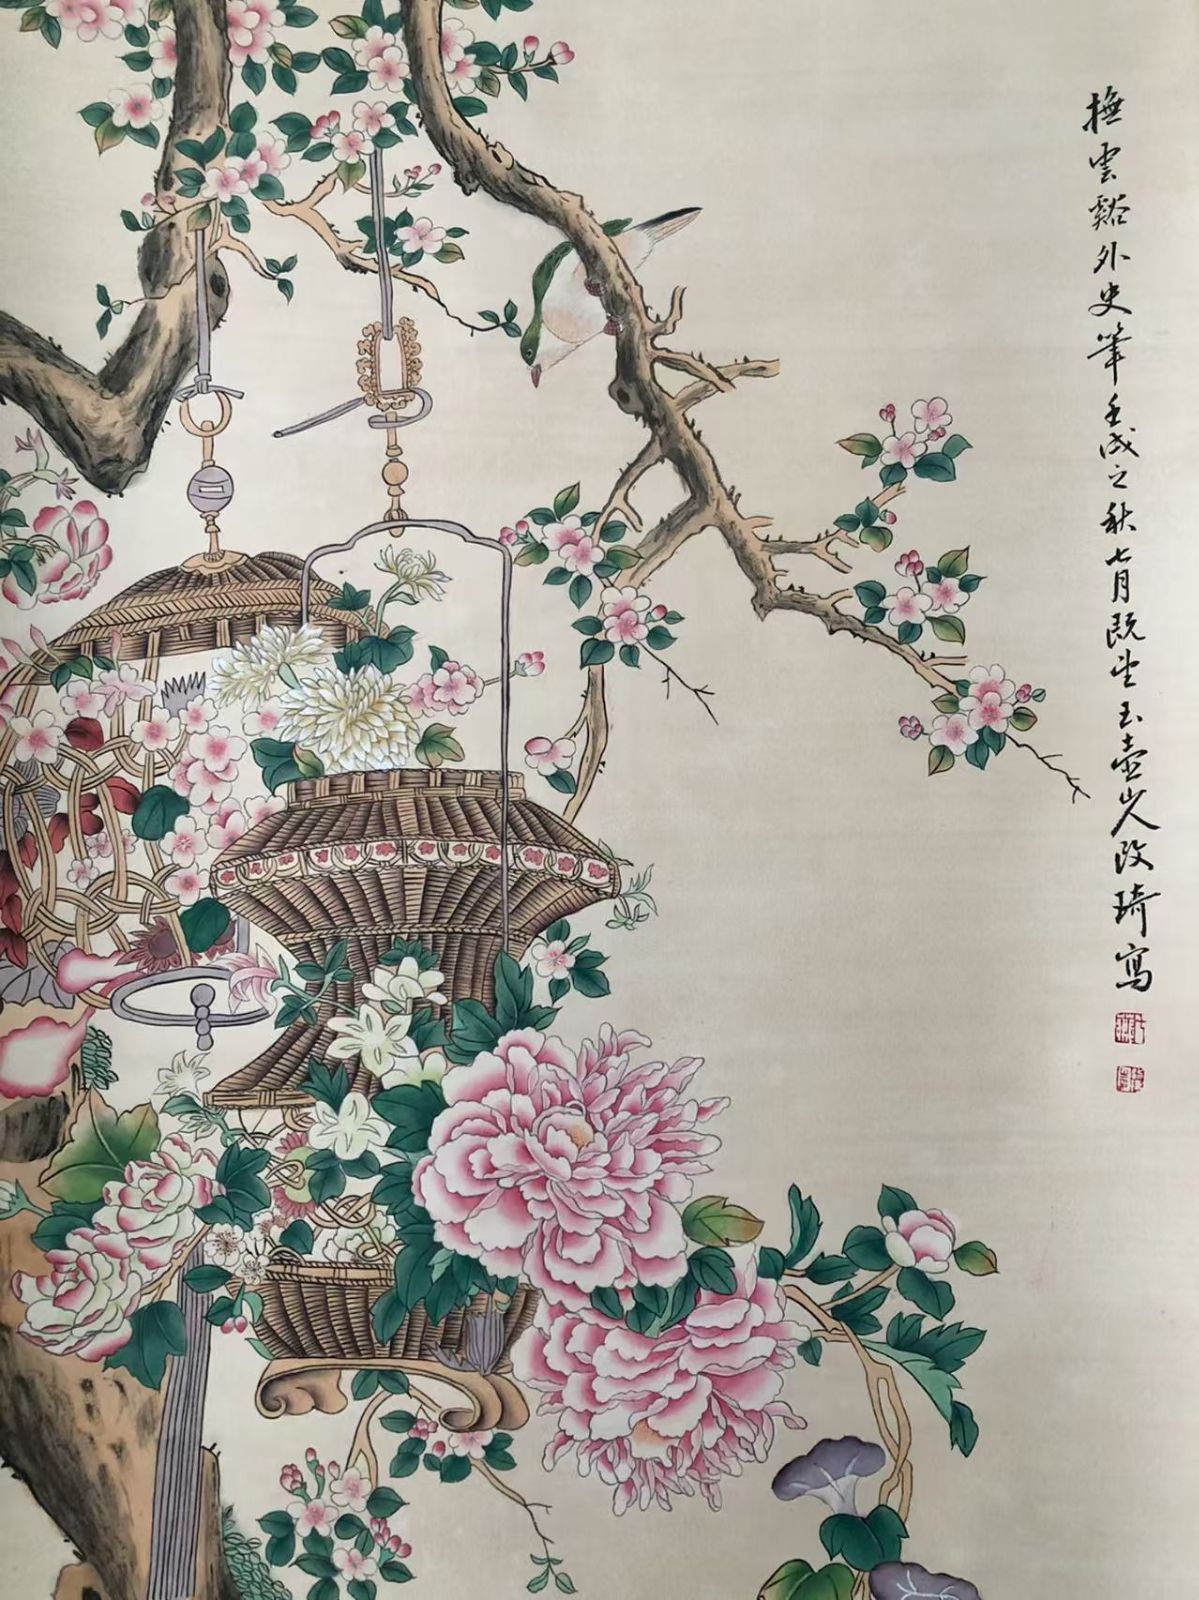 撫雲谿外史筆壬戌之秋七月既望玉壺山人改琦寫